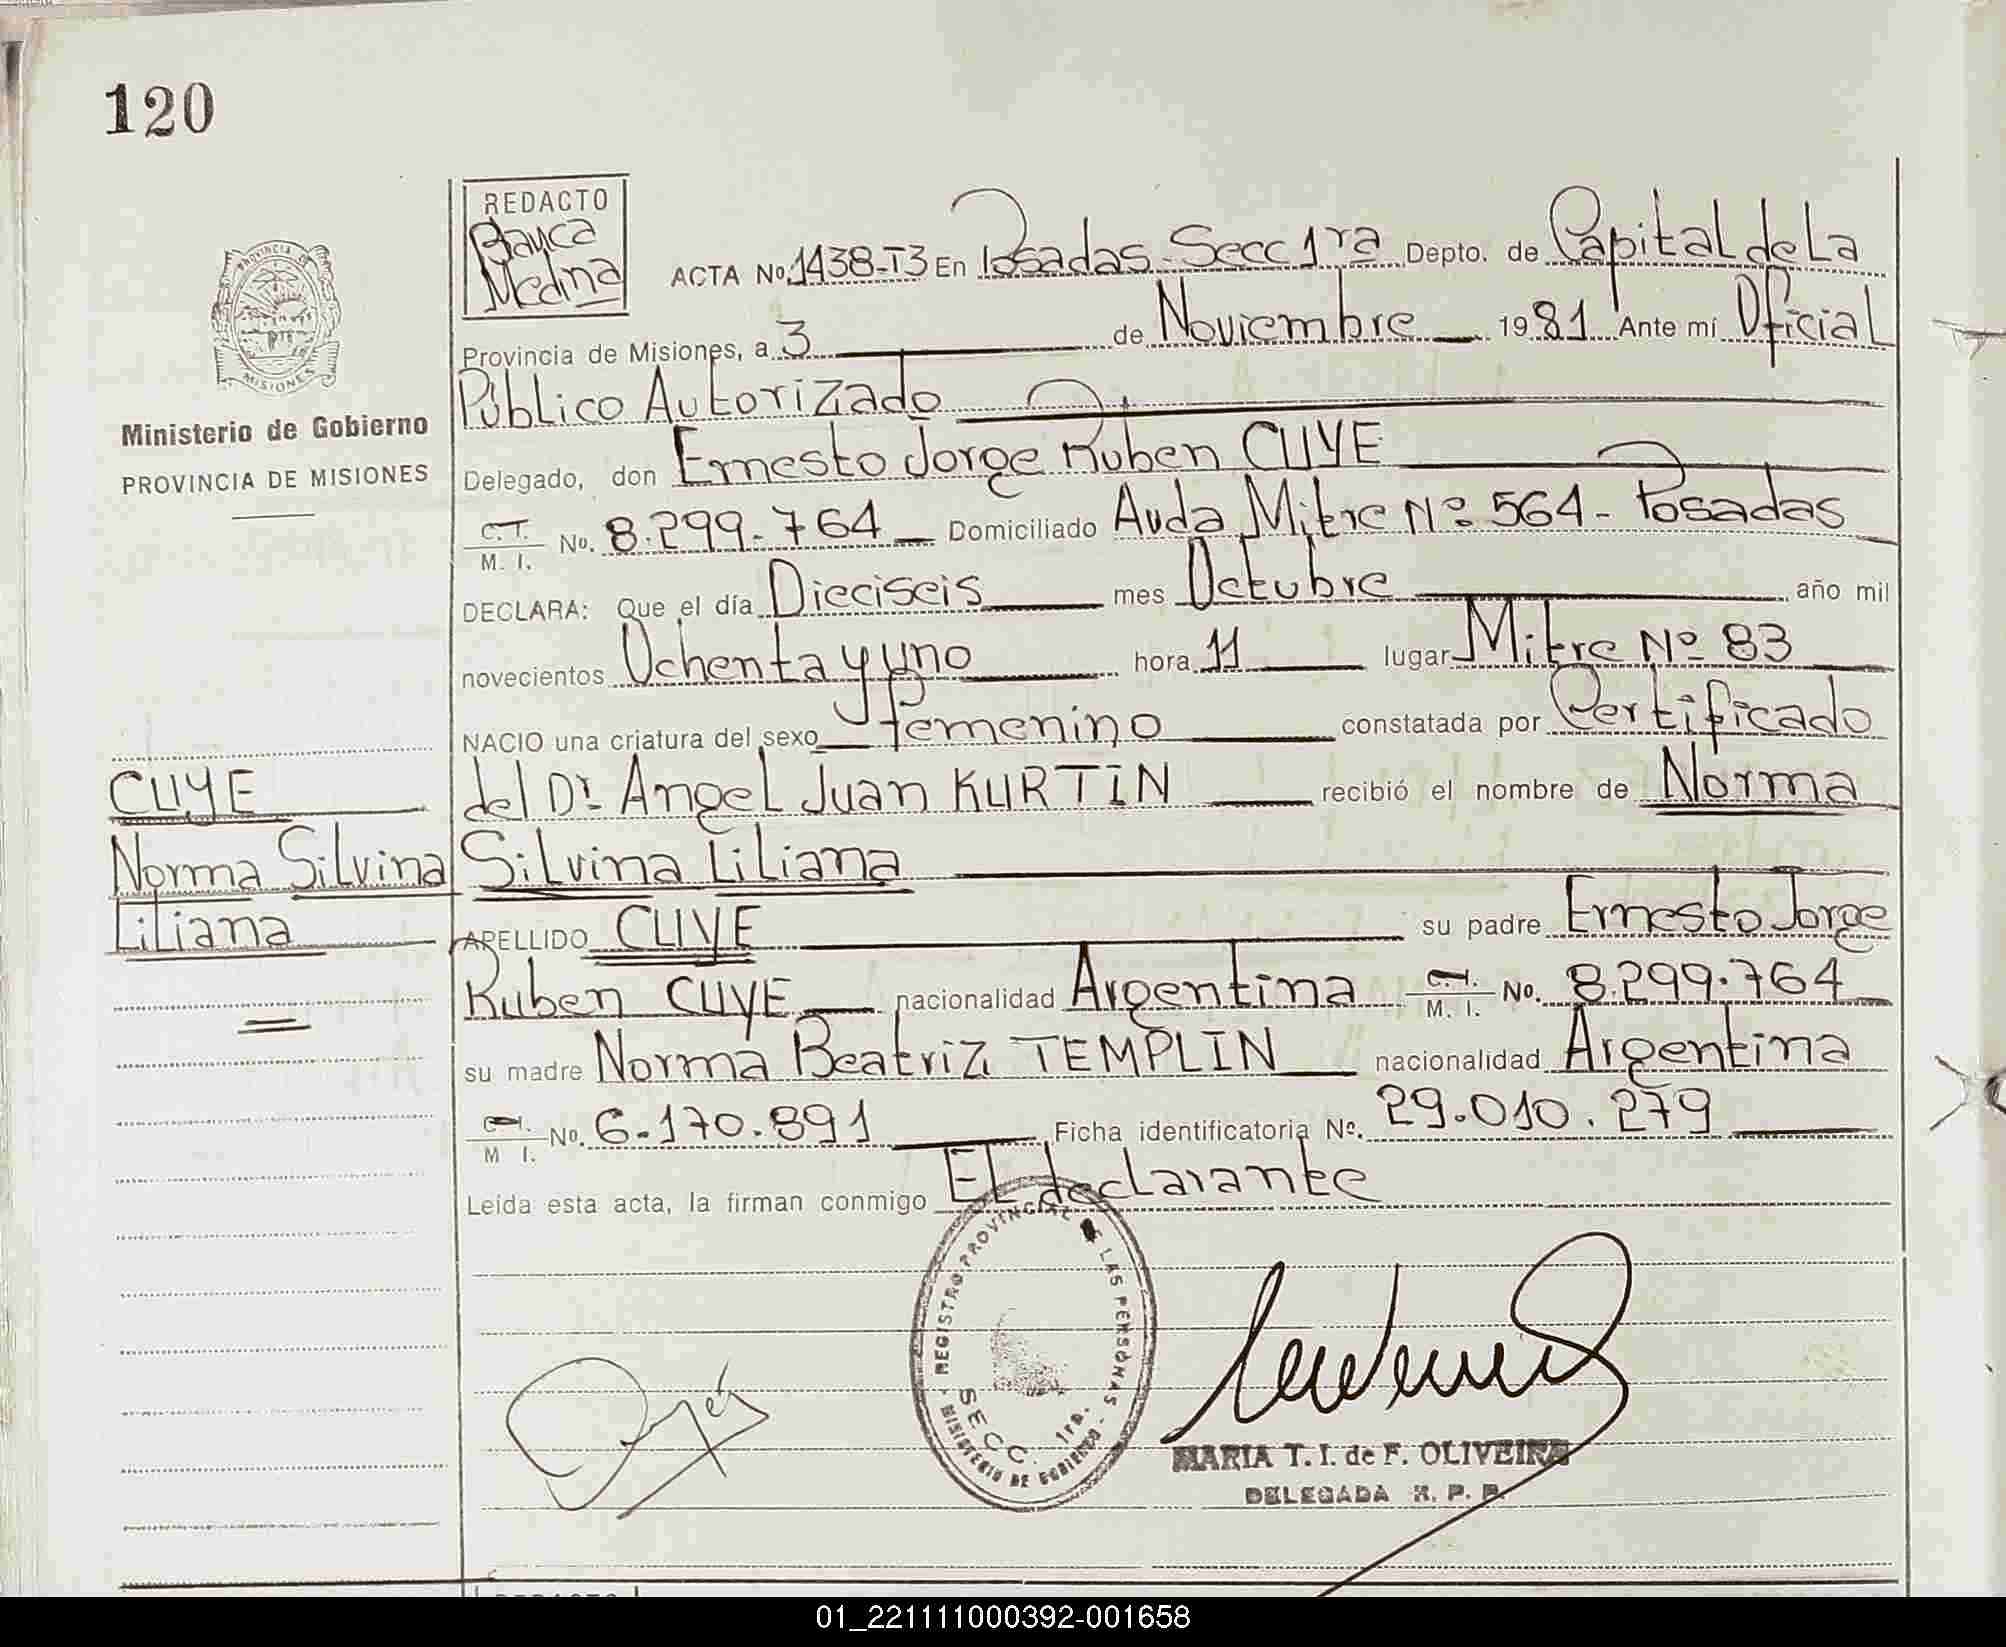 120
REDACTO
Blanca
Medina
ACTA No. 1438-T3 En Posadas-Secc 1ra Depto. de Capital de La
Provincia de Misiones, a 3 de Noviembre 1981 Ante mí Oficial
Público Autorizado
Delegado, don Ernesto Jorge Ruben CUYE
C.I. M. I. No. 8.299.764 Domiciliado Avda Mitre Nº 564 - Posadas
DECLARA: Que el día Dieciseis mes Octubre año mil
novecientos Ochenta y uno hora 11 lugar Mitre Nº 83
NACIO una criatura del sexo femenino constatada por Certificado
del Dr. Angel Juan KURTIN recibió el nombre de Norma
Silvina Liliana
APELLIDO CUYE su padre Ernesto Jorge
Ruben CUYE nacionalidad Argentina C.I. M. I. No. 8.299.764
su madre Norma Beatriz TEMPLIN nacionalidad Argentina
C.I. M I. No. 6.170.891 Ficha identificatoria No. 29.010.279
Leída esta acta, la firman conmigo El declarante
PROVINCIA DE
MISIONES
Ministerio de Gobierno
PROVINCIA DE MISIONES
CUYE
Norma Silvina
Liliana
REGISTRO PROVINCIAL DE LAS PERSONAS
SECC. 1ra.
MINISTERIO DE GOBIERNO
MARIA T. I. de F. OLIVEIRA
DELEGADA R. P. P.
REDACTO
01_221111000392-001658